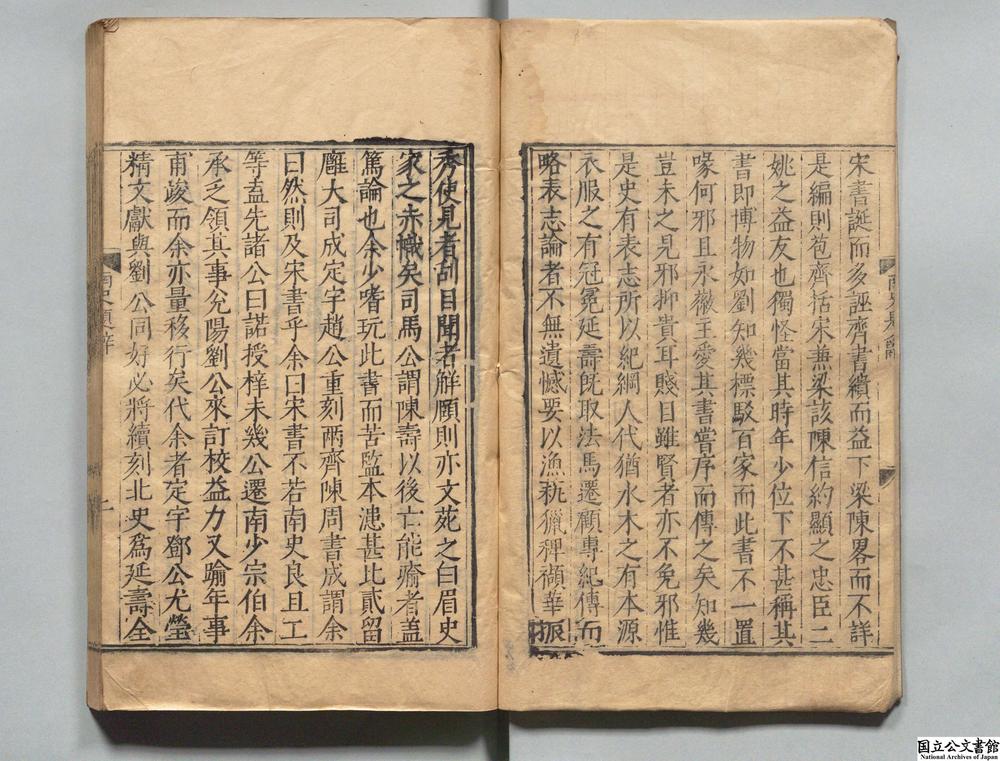 宋書誕而多誣齊書續而益下梁陳畧而不詳
是編則苞齊括宋兼梁該陳信約顯之忠臣二
姚之益友也獨怪當其時年少位下不甚稱其
書即博物如劉知幾標駁百家而此書不一置
喙何邪且永徽王愛其書嘗序而傳之矣知幾
豈未之見邪抑貴耳賤目雖賢者亦不免邪惟
是史有表志所以紀綱人代猶水木之有本源
衣服之有冠冕延壽旣取法馬遷顧專紀傳而
略表志論者不無遺憾要以漁秇獵稗襭華振
秀使見者刮目聞者解頤則亦文苑之白眉史
家之赤幟矣司馬公謂陳壽以後亡能瘉者盖
篤論也余少嗜玩此書而苦監本漶甚比貳留
廱大司成定宇趙公重刻兩齊陳周書成謂余
曰然則及宋書乎余曰宋書不若南史良且工
等盍先諸公曰諾授梓未幾公遷南少宗伯余
承乏領其事兊陽劉公來訂校益力又踰年事
甫竣而余亦量移行矣代余者定宇鄧公尤瑩
精文獻與劉公同好必將續刻北史爲延壽全
南史題辭
国立公文書館
National Archives of Japan